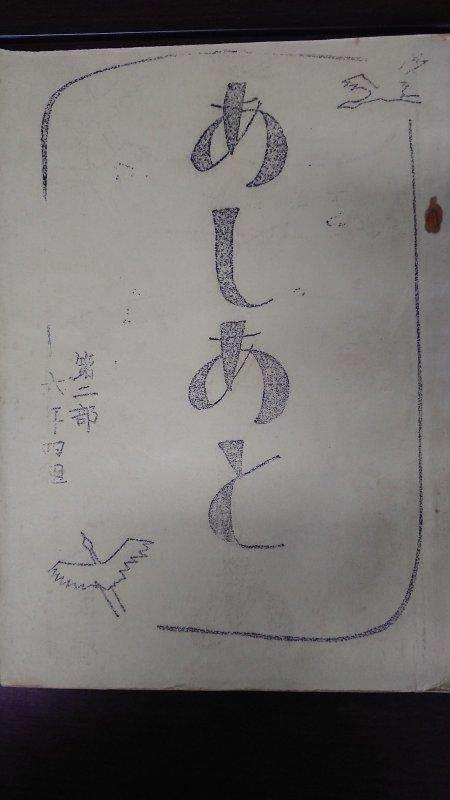 あしあと
第二部
六年四組